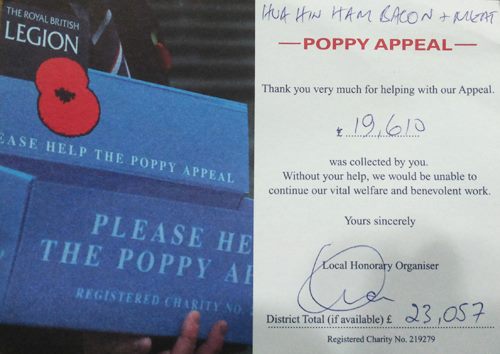 THE ROYAL BRITISH
LEGION
EASE HELP THE POPPY APPEAL
PLEASE HE
THE POPPY AP
REGISTERED CHARITY No. 2
HUA HIN HAM BACON + MEAT
POPPY APPEAL
Thank you very much for helping with our Appeal.
£ 19,610
was collected by you.
Without your help, we would be unable to
continue our vital welfare and benevolent work.
Yours sincerely
Local Honorary Organiser
District Total (if available) £ 23,057
Registered Charity No. 219279